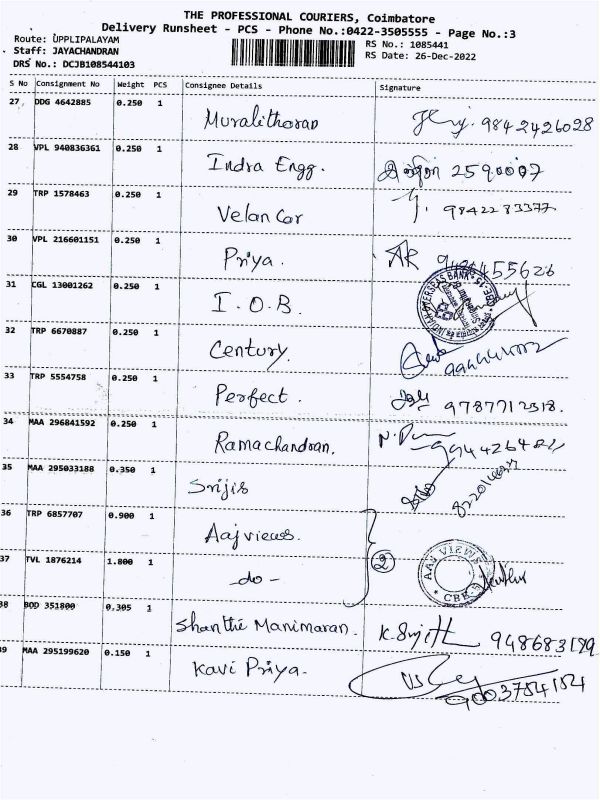 THE PROFESSIONAL COURIERS, Coimbatore
Delivery Runsheet - PCS - Phone No.:0422-3505555 - Page No.:3
Route: UPPLIPALAYAM
RS No.: 1085441
Staff: JAYACHANDRAN
RS Date: 26-Dec-2022
DRS No.: DCJB108544103
S No Consignment No Weight PCS Consignee Details Signature
27 DDG 4642885 0.250 1 Muralitharan 9842426028
28 VPL 940836361 0.250 1 Indra Engg. 2590007
29 TRP 1578463 0.250 1 Velan Car 9842283377
30 VPL 216601151 0.250 1 Priya.
31 CGL 13001262 0.250 1 I.O.B. INDIAN OVERSEAS BANK
32 TRP 6670887 0.250 1 Century
33 TRP 5554758 0.250 1 Perfect. 9787712318.
34 MAA 296841592 0.250 1 Ramachandran.
35 MAA 295033188 0.350 1 Srijis
36 TRP 6857707 0.900 1 Aajviews. 2 AAJ VIEWS CBE
37 TVL 1876214 1.800 1 -do-
38 BOD 351800 0.305 1 Shanthi Manimaran.
39 MAA 295199620 0.150 1 Kavi Priya. 9003754154